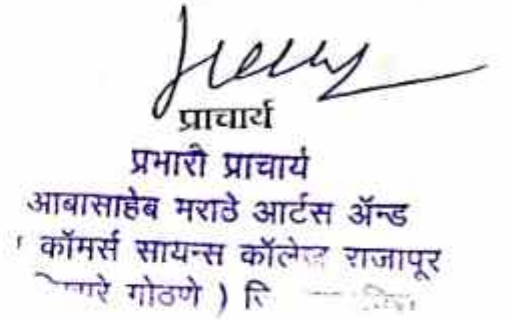 प्राचार्य
प्रभारी प्राचार्य
आबासाहेब मराठे आर्टस ॲन्ड
कॉमर्स सायन्स कॉलेज राजापूर
गोठणे )